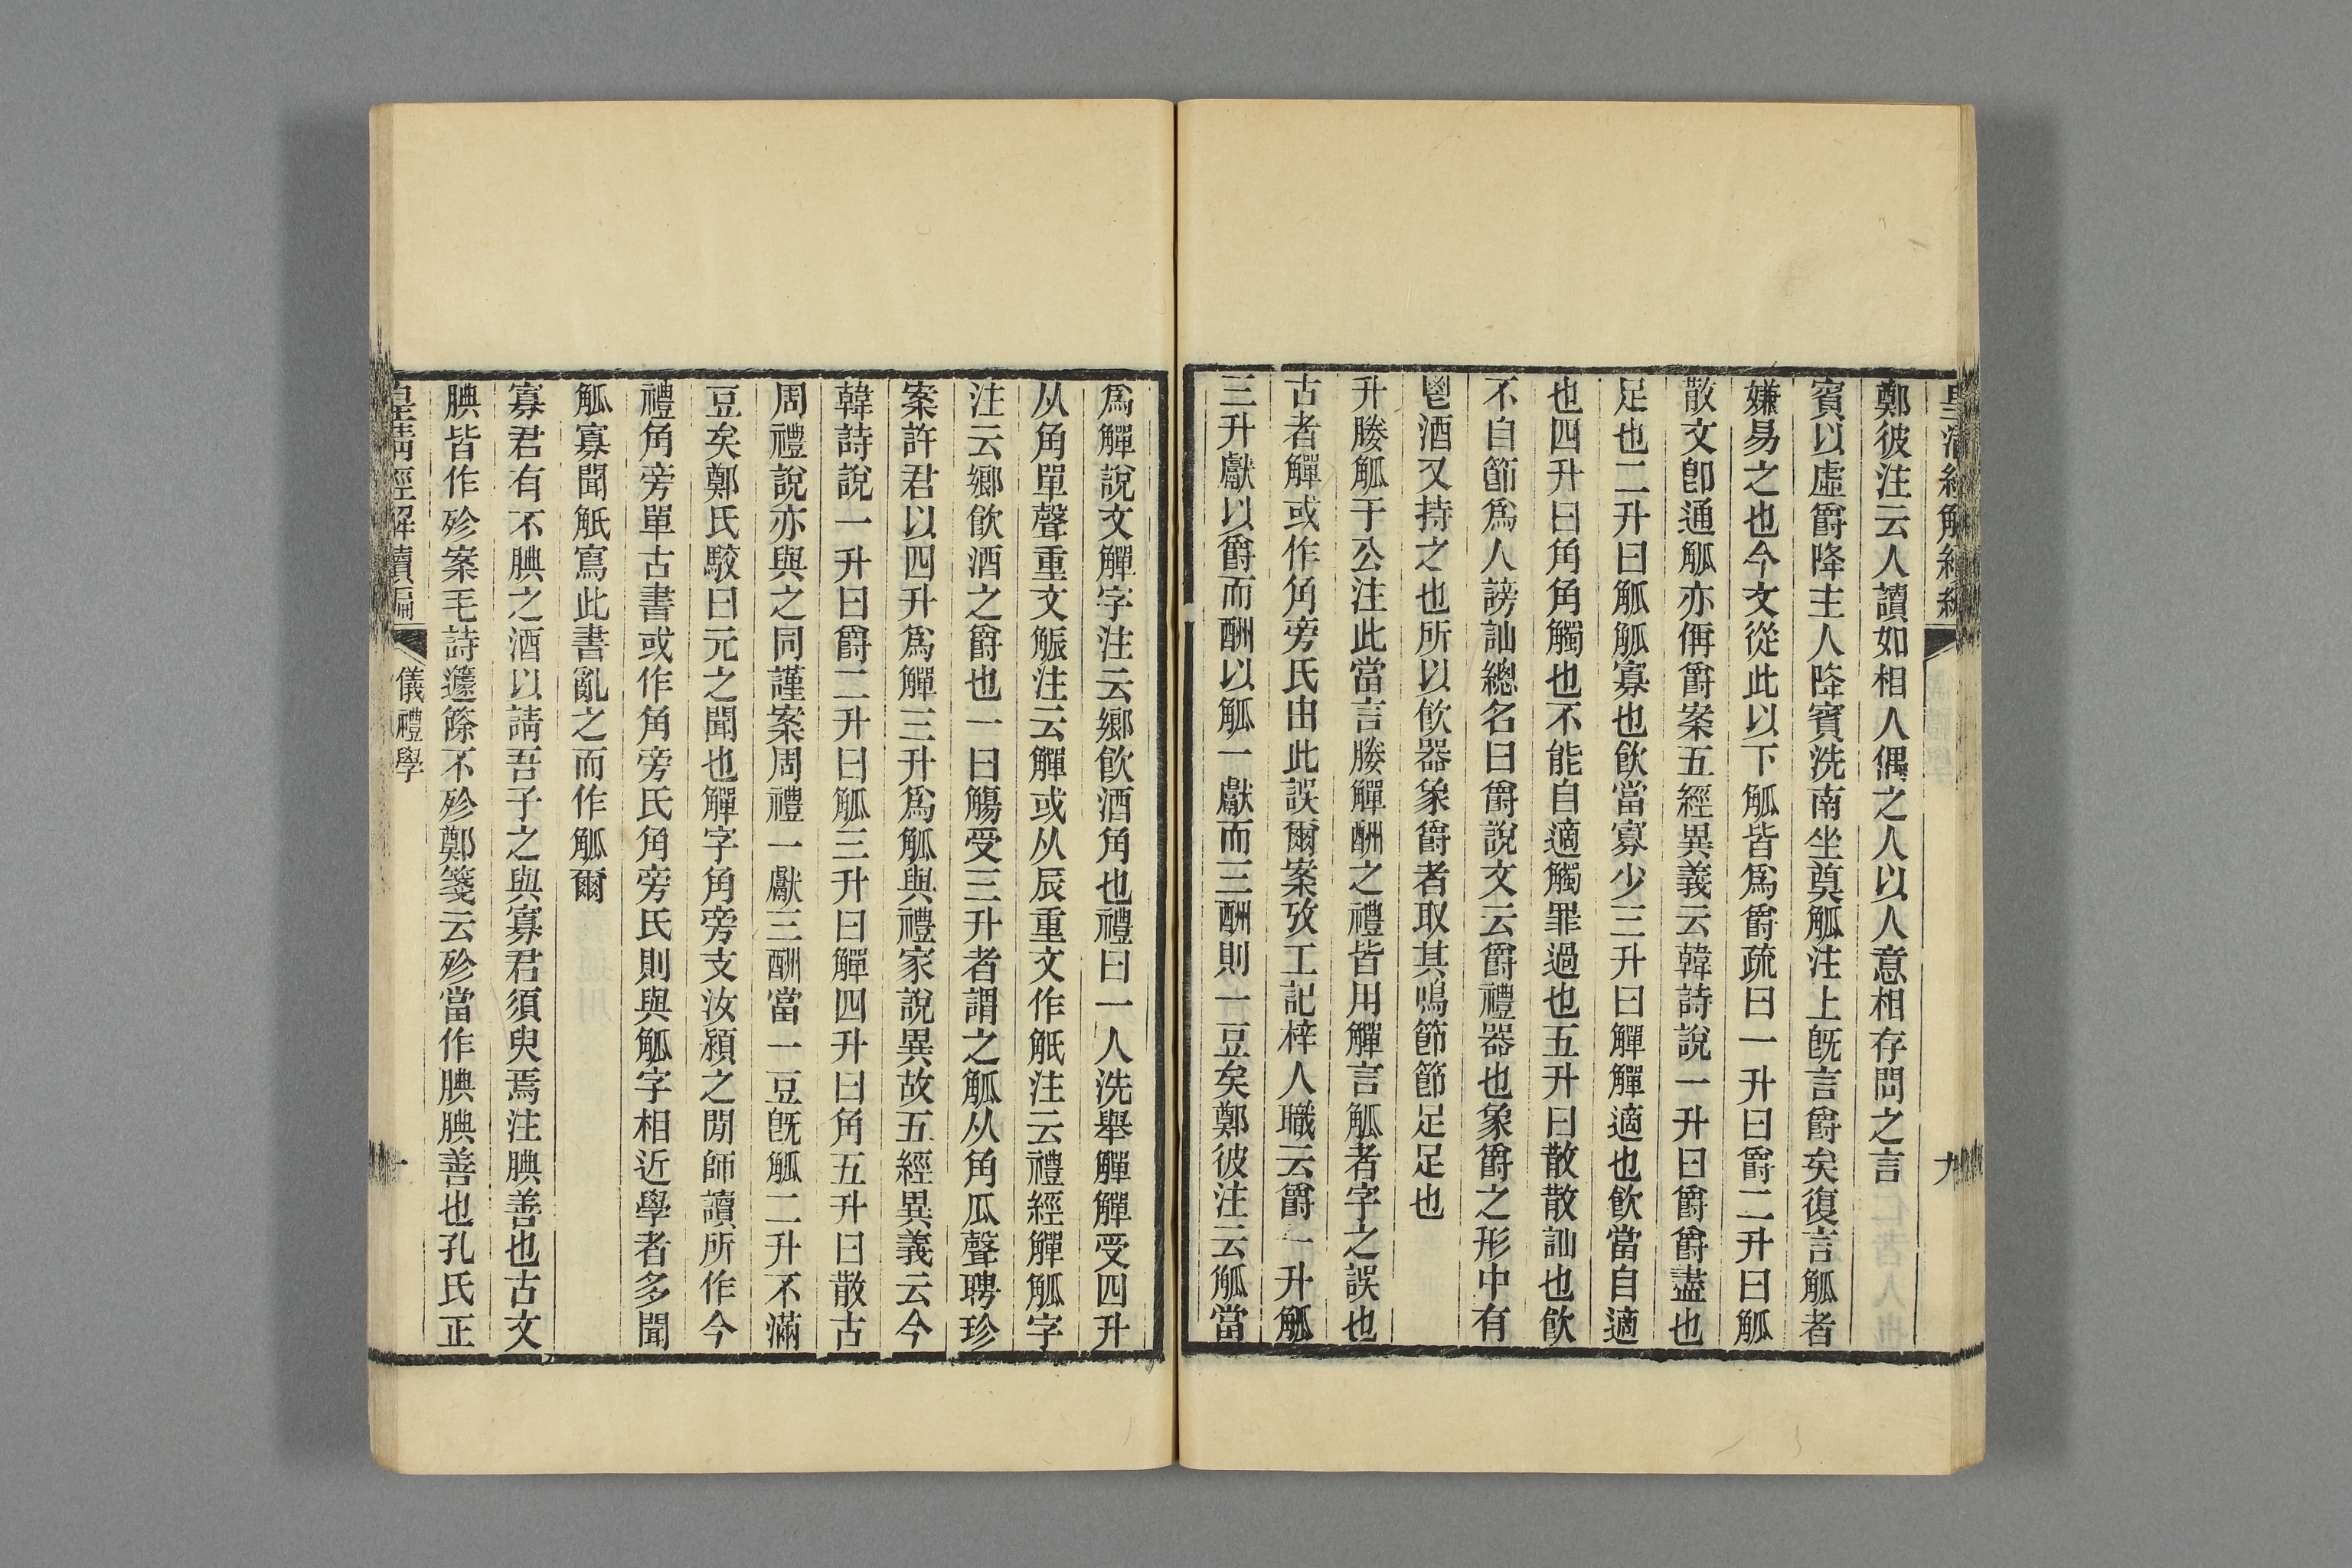 皇清經解續編
九
鄭彼注云人讀如相人偶之人以人意相存問之言
賓以虛爵降主人降賓洗南坐奠觚注上旣言爵矣復言觚者
嫌易之也今文從此以下觚皆爲爵疏曰一升曰爵二升曰觚
散文卽通觚亦偁爵案五經異義云韓詩說一升曰爵爵盡也
足也二升曰觚觚寡也飮當寡少三升曰觶觶適也飮當自適
也四升曰角角觸也不能自適觸罪過也五升曰散散訕也飮
不自節爲人謗訕總名曰爵說文云爵禮器也象爵之形中有
鬯酒又持之也所以飮器象爵者取其鳴節節足足也
升媵觚于公注此當言媵觶酬之禮皆用觶言觚者字之誤也
古者觶或作角旁氏由此誤爾案攷工記梓人職云爵一升觚
三升獻以爵而酬以觚一獻而三酬則一豆矣鄭彼注云觚當
爲觶說文觶字注云鄉飮酒角也禮曰一人洗舉觶觶受四升
从角單聲重文觗注云觶或从辰重文作觗注云禮經觶觚字
注云鄉飮酒之爵也一曰觴受三升者謂之觚从角瓜聲聘珍
案許君以四升爲觶三升爲觚與禮家說異故五經異義云今
韓詩說一升曰爵二升曰觚三升曰觶四升曰角五升曰散古
周禮說亦與之同謹案周禮一獻三酬當一豆旣觚二升不滿
豆矣鄭氏駮曰元之聞也觶字角旁支汝潁之閒師讀所作今
禮角旁單古書或作角旁氏角旁氏則與觚字相近學者多聞
觚寡聞觗寫此書亂之而作觚爾
寡君有不腆之酒以請吾子之與寡君須臾焉注腆善也古文
腆皆作殄案毛詩籧篨不殄鄭箋云殄當作腆腆善也孔氏正
皇清經解續編
儀禮學